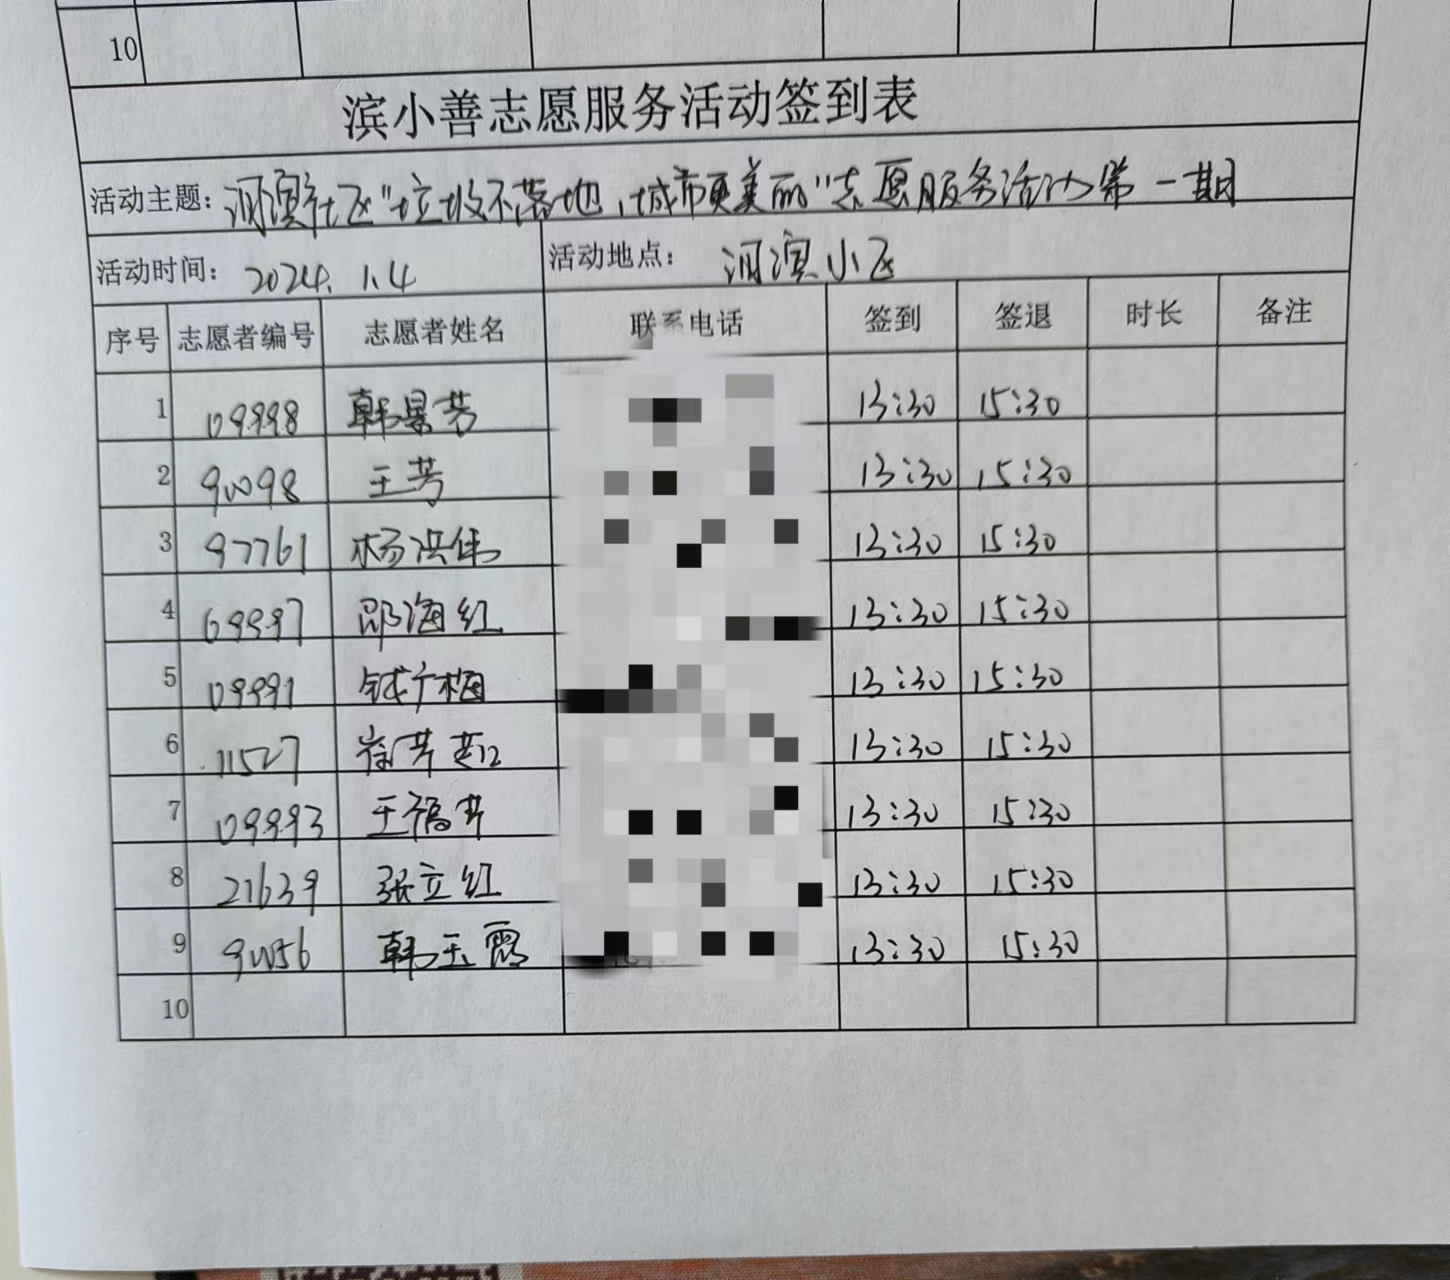 10
滨小善志愿服务活动签到表
活动主题：河滨社区"垃圾不落地，城市更美丽"志愿服务活动第一期
活动时间：2024.1.4 活动地点：河滨小区
序号 志愿者编号 志愿者姓名 联系电话 签到 签退 时长 备注
1 09998 韩景芳 13:30 15:30
2 90098 王芳 13:30 15:30
3 97761 杨洪伟 13:30 15:30
4 69997 邵海红 13:30 15:30
5 09991 钱广梅 13:30 15:30
6 11527 崔芳 13:30 15:30
7 09993 王福 13:30 15:30
8 21639 张立红 13:30 15:30
9 90056 韩玉霞 13:30 15:30
10